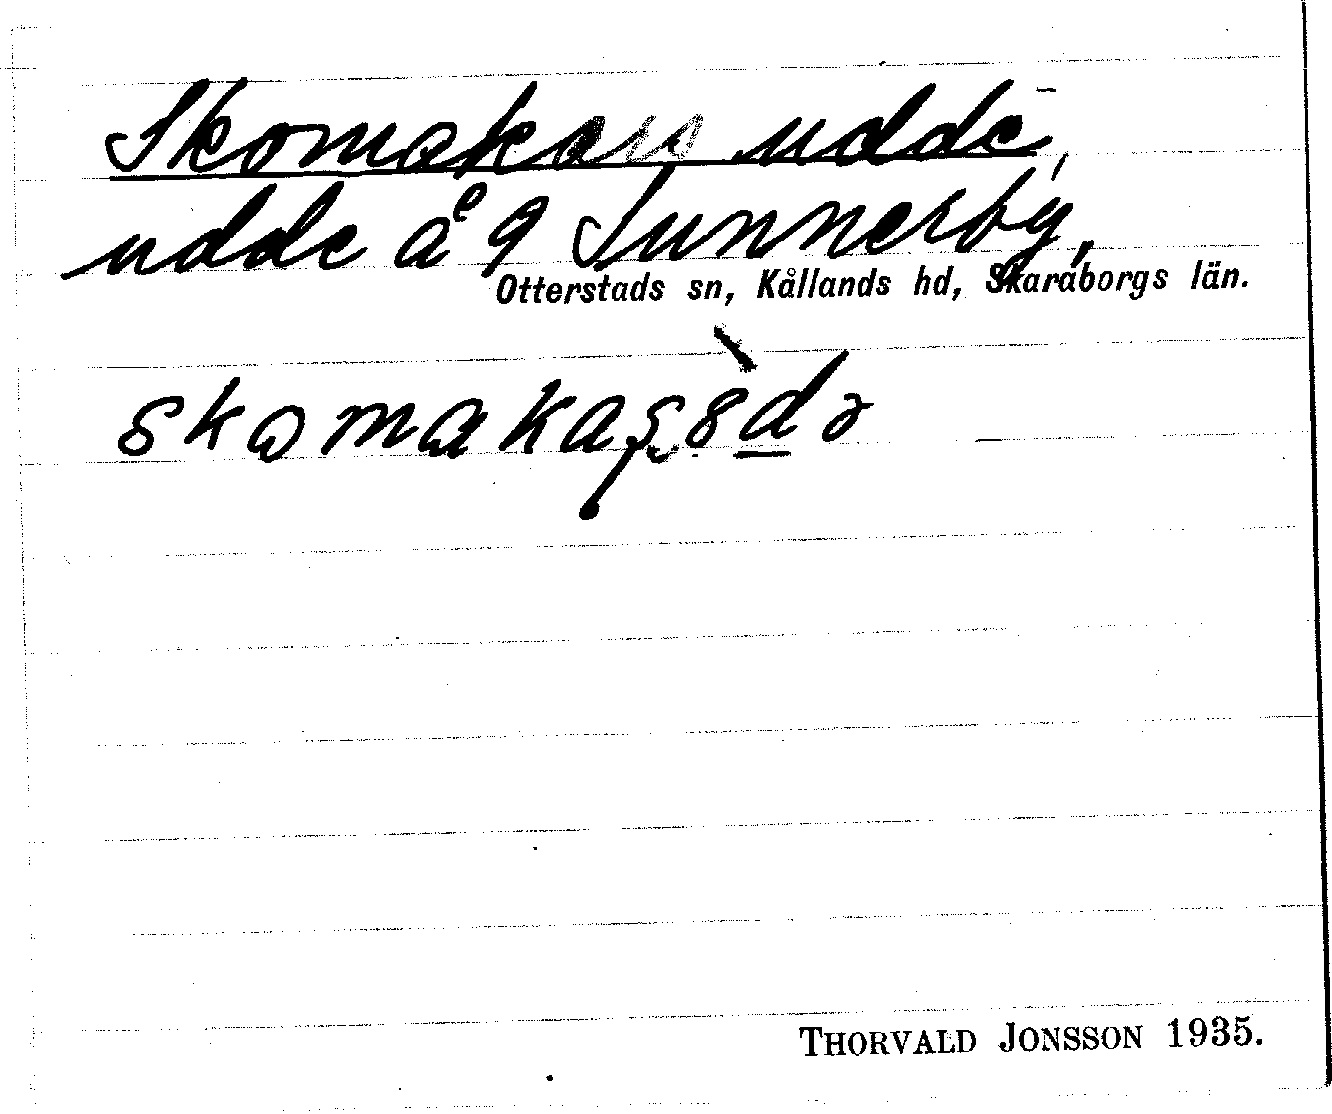 Skomakars udde,
udde å 9 Sunnerby,
Otterstads sn, Kållands hd, Skaraborgs län.
THORVALD JONSSON 1935.